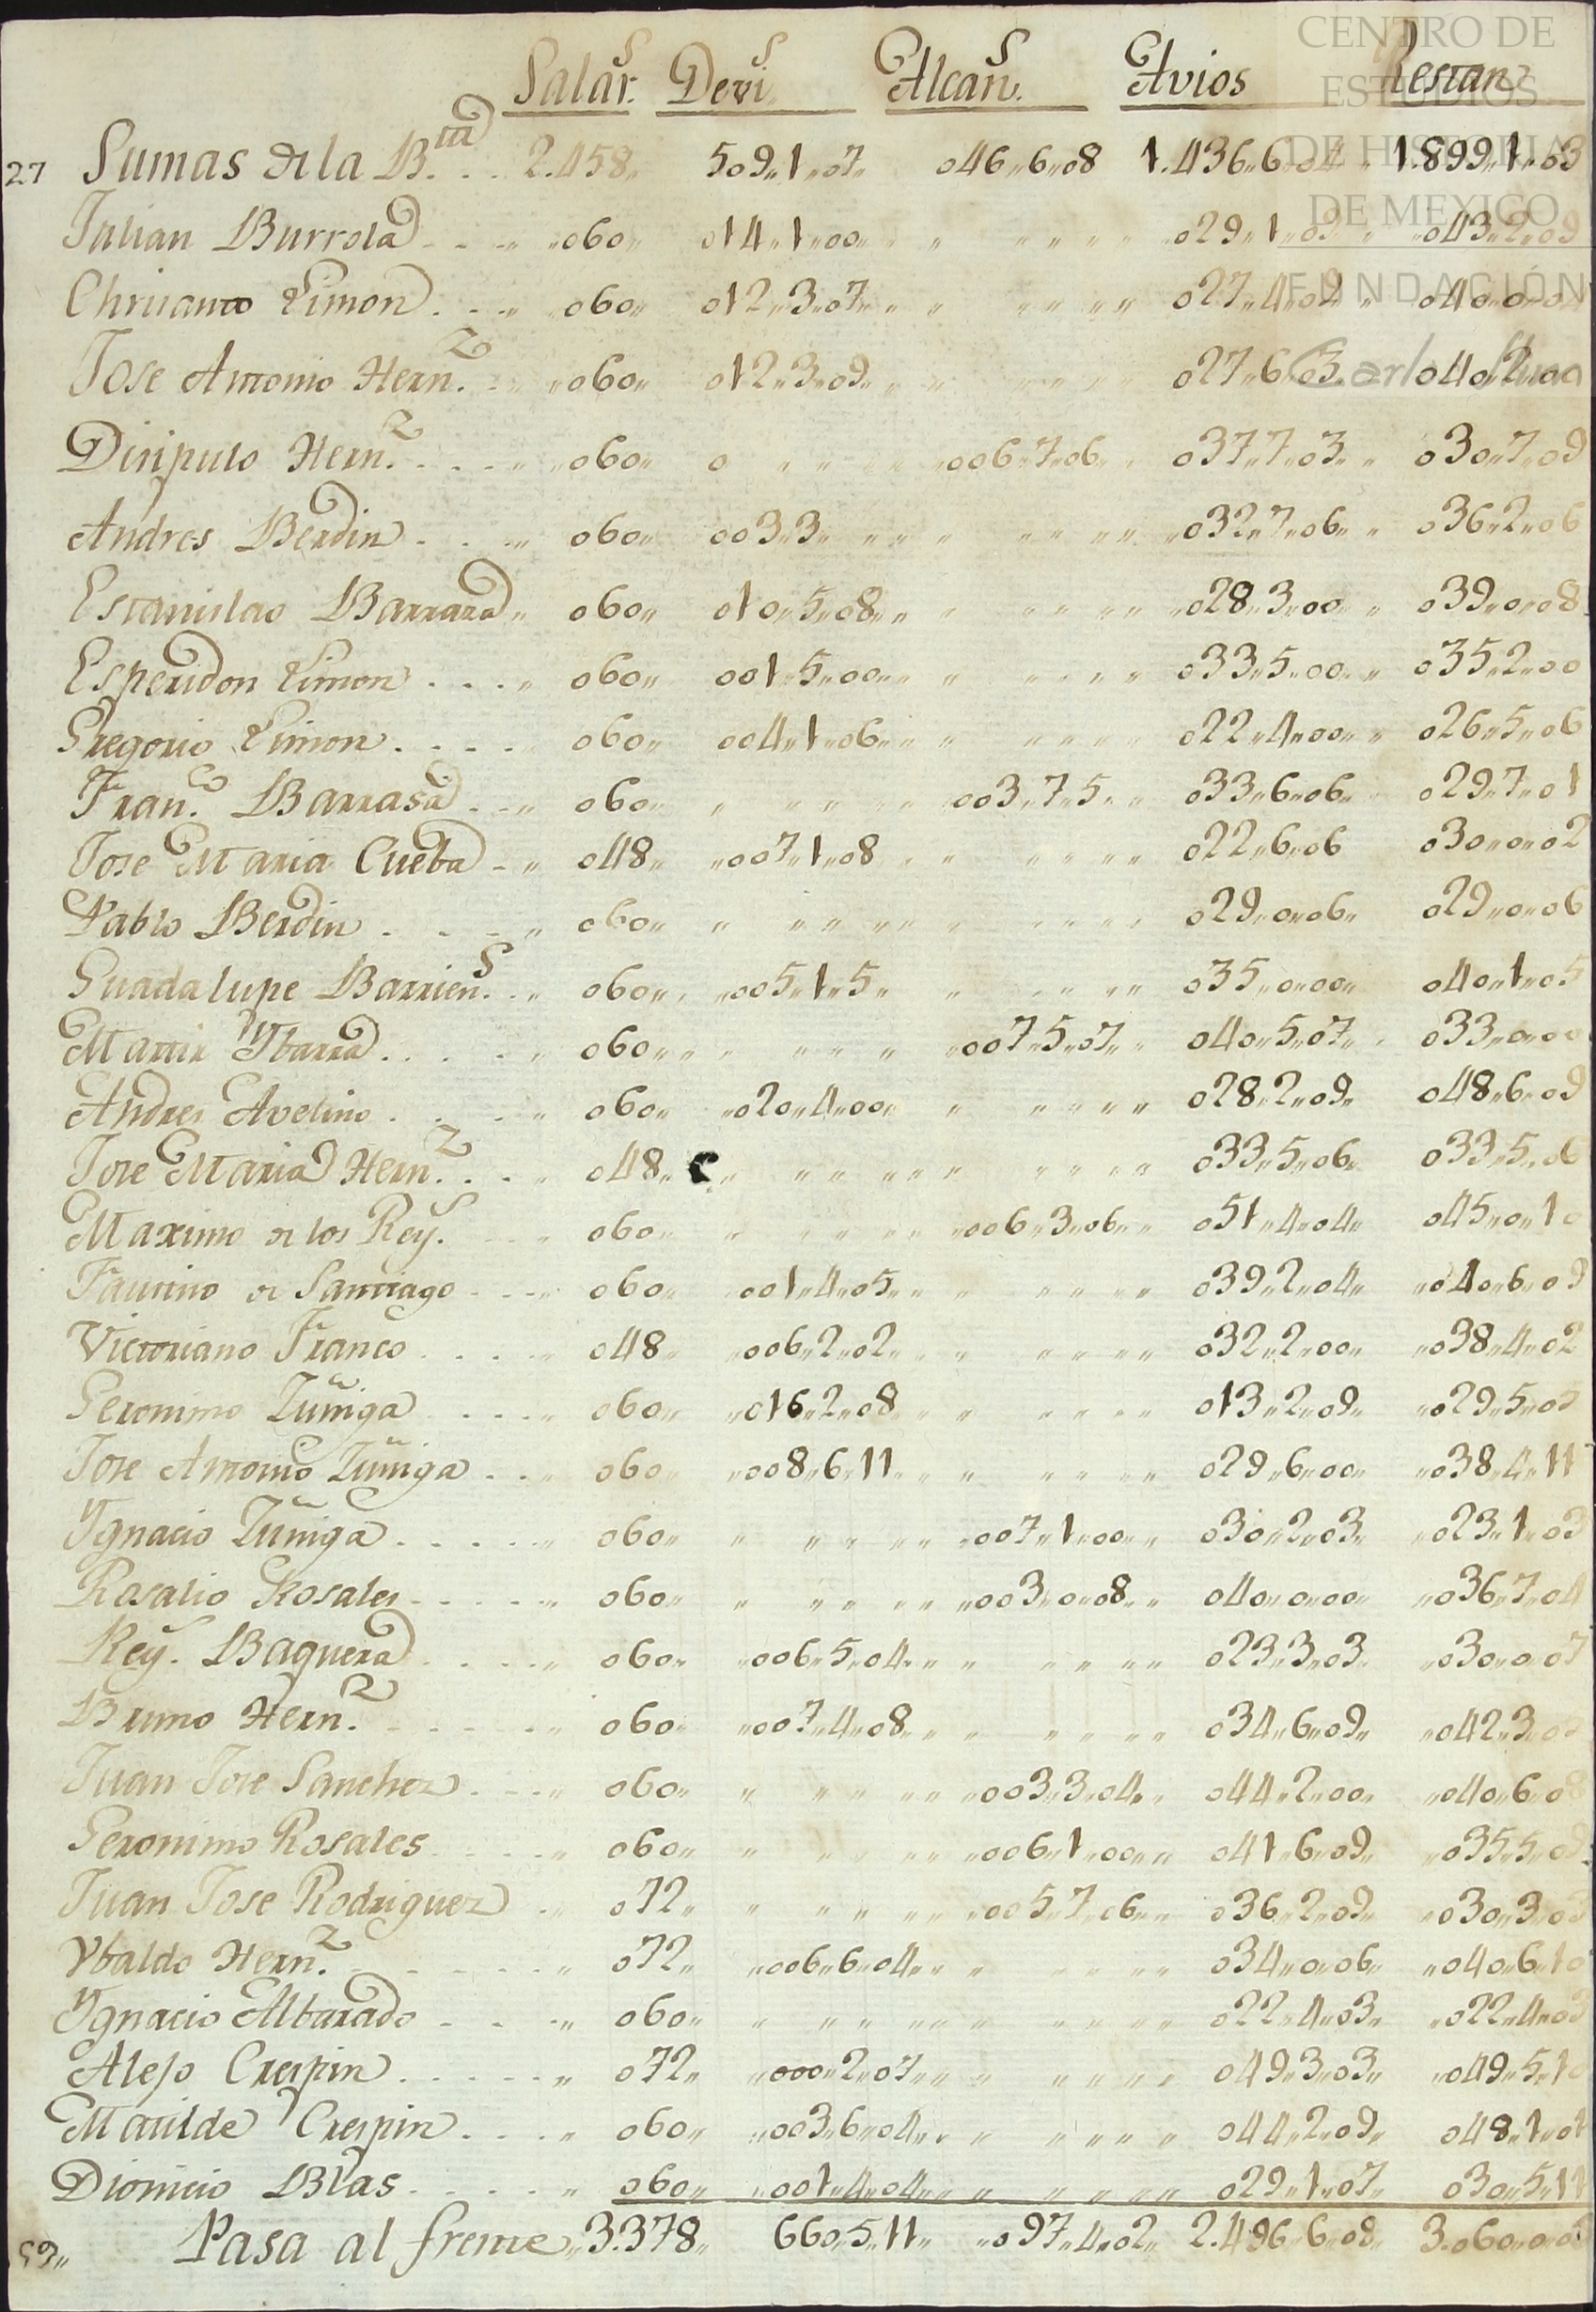 CENTRO DE
ESTUDIOS
DE HISTORIA
DE MEXICO
FUNDACIÓN
Salar.s Devi.s Alcan.s Avios Restan
27 Sumas de la B.ta . . 2.458,, 509,,1,,07,, 046,,6,,08 1.436,,6,,04 1.899,,1,,03
Julian Burrola - - - ,, ,,060,, 014,,1,,00,, ,, ,, ,, ,, ,, 029,,1,,09 ,,043,,2,,09
060,, 012,,3,,07,, ,, ,, ,, ,, ,, 027,,4,,09 ,,040,,0,,04
Jose Antonio Hern.z - ,, ,,060,, 012,,3,,09,, ,, ,, ,, ,, ,, 027,,6,,03 040,,2,,00
Hern.z . . . . ,, ,,060,, 0 ,, ,, ,, ,, ,,006,,7,,06,, 037,,7,,03,, ,, 030,,7,,09
Andres Berdin - - - ,, 060,, 003,,3,, ,, ,, ,, ,, ,, ,, ,, ,,032,,7,,06,, ,, 036,,2,,06
Estanislao Barraza ,, 060,, 010,,5,,08,, ,, ,, ,, ,, ,, ,,028,,3,,00,, ,, 039,,0,,08
Esperidon Simon . . . . ,, 060,, 001,,5,,00,, ,, ,, ,, ,, ,, 033,,5,,00,, ,, 035,,2,,00
Gregorio Simon . . . . 060,, 004,,1,,06,, ,, ,, ,, ,, ,, 022,,4,,00,, ,, 026,,5,,06
Fran.co Barrasa - - - ,, 060,, ,, ,, ,, ,, ,, ,,003,,7,,5,, ,, 033,,6,,06,, 029,,7,,01
Jose Maria Cueba - ,, 048,, ,,007,,1,,08 ,, ,, ,, ,, ,, ,, 022,,6,,06 030,,0,,02
Pablo Berdin . . - - ,, 060,, ,, ,, ,, ,, ,, ,, ,, ,, ,, 029,,0,,06,, 029,,0,,06
Guadalupe Barrien.s . ,, 060,, ,,005,,1,,5,, ,, ,, ,, ,, ,, 035,,0,,00,, 040,,1,,05
Martin Ybarra . . . . ,, 060,, ,, ,, ,, ,, ,, ,,007,,5,,07,, ,, 040,,5,,07,, 033,,0,,00
Andres Avelino . . . ,, 060,, ,,020,,4,,00,, ,, ,, ,, ,, ,, 028,,2,,09,, 048,,6,,09
Jose Maria Hern.z . . . ,, 048,, ,, ,, ,, ,, ,, ,, ,, ,, ,, 033,,5,,06,, 033,,5,,06
Maximo de los Rey.s - - ,, 060,, ,, ,, ,, ,, ,,006,,3,,06,, ,, 051,,4,,04,, 045,,0,,10
Faustino de Santiago - - ,, 060,, ,,001,,4,,05,, ,, ,, ,, ,, ,, 039,,2,,04,, ,,040,,6,,09
Victoriano Franco . . . . ,, 048,, ,,006,,2,,02,, ,, ,, ,, ,, ,, 032,,2,,00,, ,,038,,4,,02
Geronimo Zuñiga . . . . ,, 060,, ,,016,,2,,08,, ,, ,, ,, ,, ,, 013,,2,,09,, ,,029,,5,,05
Jose Antonio Zuñiga - - ,, 060,, ,,008,,6,,11,, ,, ,, ,, ,, ,, 029,,6,,00,, ,,038,,4,,11
Ygnacio Zuñiga . . . . . ,, 060,, ,, ,, ,, ,, ,, ,,007,,1,,00,, ,, 030,,2,,03,, ,,023,,1,,03
Rosalio Rosales - - - - ,, 060,, ,, ,, ,, ,, ,, ,,003,,0,,08,, ,, 040,,0,,00,, ,,036,,7,,04
Rey.s Baquera . . . . ,, 060,, ,,006,,5,,04,, ,, ,, ,, ,, ,, 023,,3,,03,, ,,030,,0,,07
Bruno Hern.z - - - - ,, 060,, ,,007,,4,,08,, ,, ,, ,, ,, ,, 034,,6,,09,, ,,042,,3,,05
Juan Jose Sanchez . - - ,, 060,, ,, ,, ,, ,, ,, ,,003,,3,,04,, ,, 044,,2,,00,, ,,040,,6,,08
Geronimo Rosales - - - ,, 060,, ,, ,, ,, ,, ,, ,,006,,1,,00,, ,, 041,,6,,09,, ,,035,,5,,09
Juan Jose Rodriguez . ,, 072,, ,, ,, ,, ,, ,, ,,005,,7,,06,, ,, 036,,2,,09,, ,,030,,3,,03
Ybaldo Hern.z - - - - ,, 072,, ,,006,,6,,04,, ,, ,, ,, ,, ,, 034,,0,,06,, ,,040,,6,,10
Ygnacio Albarado - - - ,, 060,, ,, ,, ,, ,, ,, ,, ,, ,, ,, 022,,4,,03,, ,,022,,4,,03
Alejo Crespin . . . . . ,, 072,, ,,000,,2,,07,, ,, ,, ,, ,, ,, 049,,3,,03,, ,,049,,5,,10
Matilde Crespin . . . . ,, 060,, ,,003,,6,,04,, ,, ,, ,, ,, ,, 044,,2,,09,, 048,,1,,01
Dionicio Blas . . . . . ,, 060,, ,,001,,4,,04,, ,, ,, ,, ,, ,, 029,,1,,07,, 030,,5,,11
59,, Pasa al frente,, 3.378,, 660,,5,,11,, ,,097,,4,,02,, 2.496,,6,,09,, 3.060,,0,,06